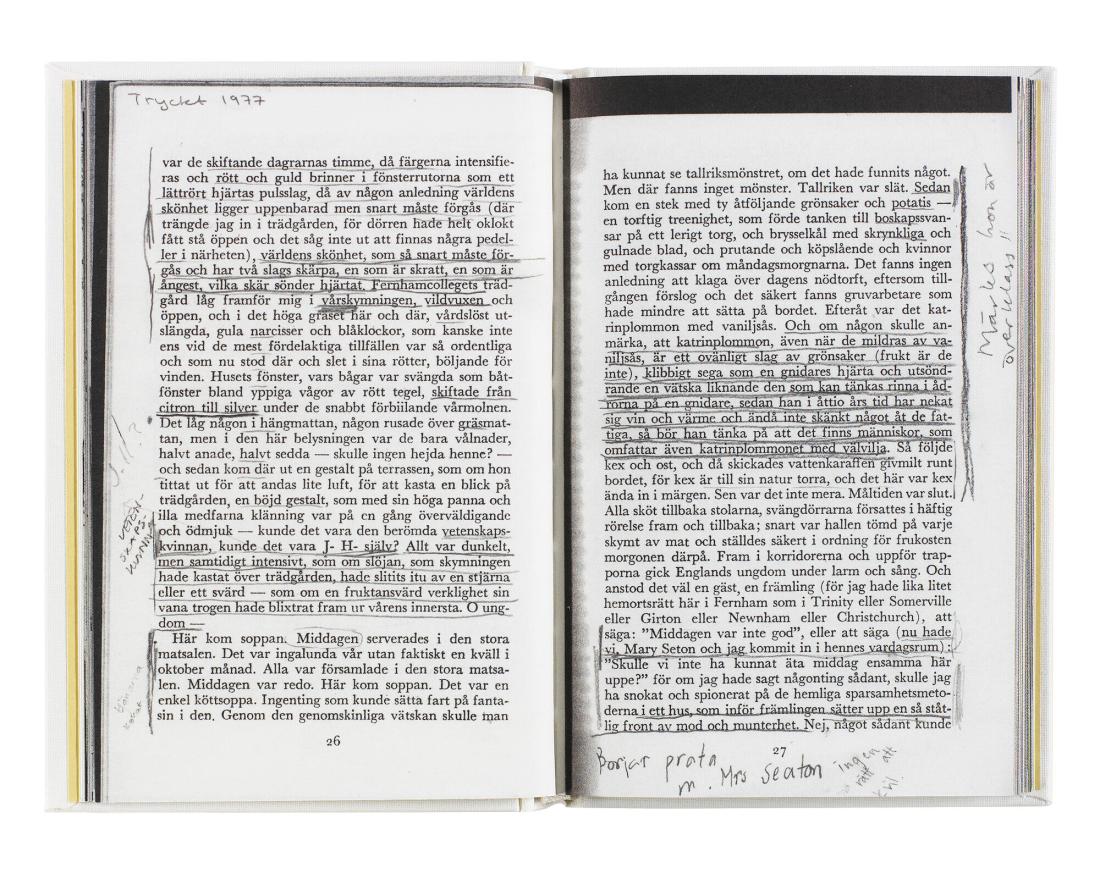 Tryckt 1977
var de skiftande dagrarnas timme, då färgerna intensifie-
ras och rött och guld brinner i fönsterrutorna som ett
lättrört hjärtas pulsslag, då av någon anledning världens
skönhet ligger uppenbarad men snart måste förgås (där
trängde jag in i trädgården, för dörren hade helt oklokt
fått stå öppen och det såg inte ut att finnas några pedel-
ler i närheten), världens skönhet, som så snart måste för-
gås och har två slags skärpa, en som är skratt, en som är
ångest, vilka skär sönder hjärtat. Fernhamcollegets träd-
gård låg framför mig i vårskymningen, vildvuxen och
öppen, och i det höga gräset här och där, vårdslöst ut-
slängda, gula narcisser och blåklockor, som kanske inte
ens vid de mest fördelaktiga tillfällen var så ordentliga
och som nu stod där och slet i sina rötter, böljande för
vinden. Husets fönster, vars bågar var svängda som båt-
fönster bland yppiga vågor av rött tegel, skiftade från
citron till silver under de snabbt förbiilande vårmolnen.
Det låg någon i hängmattan, någon rusade över gräsmat-
tan, men i den här belysningen var de bara vålnader,
halvt anade, halvt sedda — skulle ingen hejda henne? —
och sedan kom där ut en gestalt på terrassen, som om hon
tittat ut för att andas lite luft, för att kasta en blick på
trädgården, en böjd gestalt, som med sin höga panna och
illa medfarna klänning var på en gång överväldigande
och ödmjuk — kunde det vara den berömda vetenskaps-
kvinnan, kunde det vara J- H- själv? Allt var dunkelt,
men samtidigt intensivt, som om slöjan, som skymningen
hade kastat över trädgården, hade slitits itu av en stjärna
eller ett svärd — som om en fruktansvärd verklighet sin
vana trogen hade blixtrat fram ur vårens innersta. O ung-
dom —
Här kom soppan. Middagen serverades i den stora
matsalen. Det var ingalunda vår utan faktiskt en kväll i
oktober månad. Alla var församlade i den stora matsa-
len. Middagen var redo. Här kom soppan. Det var en
enkel köttsoppa. Ingenting som kunde sätta fart på fanta-
sin i den. Genom den genomskinliga vätskan skulle man
26
ha kunnat se tallriksmönstret, om det hade funnits något.
Men där fanns inget mönster. Tallriken var slät. Sedan
kom en stek med ty åtföljande grönsaker och potatis —
en torftig treenighet, som förde tanken till boskapssvan-
sar på ett lerigt torg, och brysselkål med skrynkliga och
gulnade blad, och prutande och köpslående och kvinnor
med torgkassar om måndagsmorgnarna. Det fanns ingen
anledning att klaga över dagens nödtorft, eftersom till-
gången förslog och det säkert fanns gruvarbetare som
hade mindre att sätta på bordet. Efteråt var det kat-
rinplommon med vaniljsås. Och om någon skulle an-
märka, att katrinplommon, även när de mildras av va-
niljsås, är ett ovänligt slag av grönsaker (frukt är de
inte), klibbigt sega som en gnidares hjärta och utsönd-
rande en vätska liknande den som kan tänkas rinna i åd-
rorna på en gnidare, sedan han i åttio års tid har nekat
sig vin och värme och ändå inte skänkt något åt de fat-
tiga, så bör han tänka på att det finns människor, som
omfattar även katrinplommonet med välvilja. Så följde
kex och ost, och då skickades vattenkaraffen givmilt runt
bordet, för kex är till sin natur torra, och det här var kex
ända in i märgen. Sen var det inte mera. Måltiden var slut.
Alla sköt tillbaka stolarna, svängdörrarna försattes i häftig
rörelse fram och tillbaka; snart var hallen tömd på varje
skymt av mat och ställdes säkert i ordning för frukosten
morgonen därpå. Fram i korridorerna och uppför trap-
porna gick Englands ungdom under larm och sång. Och
anstod det väl en gäst, en främling (för jag hade lika litet
hemortsrätt här i Fernham som i Trinity eller Somerville
eller Girton eller Newnham eller Christchurch), att
säga: ”Middagen var inte god”, eller att säga (nu hade
vi, Mary Seton och jag kommit in i hennes vardagsrum):
”Skulle vi inte ha kunnat äta middag ensamma här
uppe?” för om jag hade sagt någonting sådant, skulle jag
ha snokat och spionerat på de hemliga sparsamhetsmeto-
derna i ett hus, som inför främlingen sätter upp en så ståt-
lig front av mod och munterhet. Nej, något sådant kunde
27
Märks hon är
överklass !!
Börjar prata
m. Mrs Seaton
ingen
rätt att